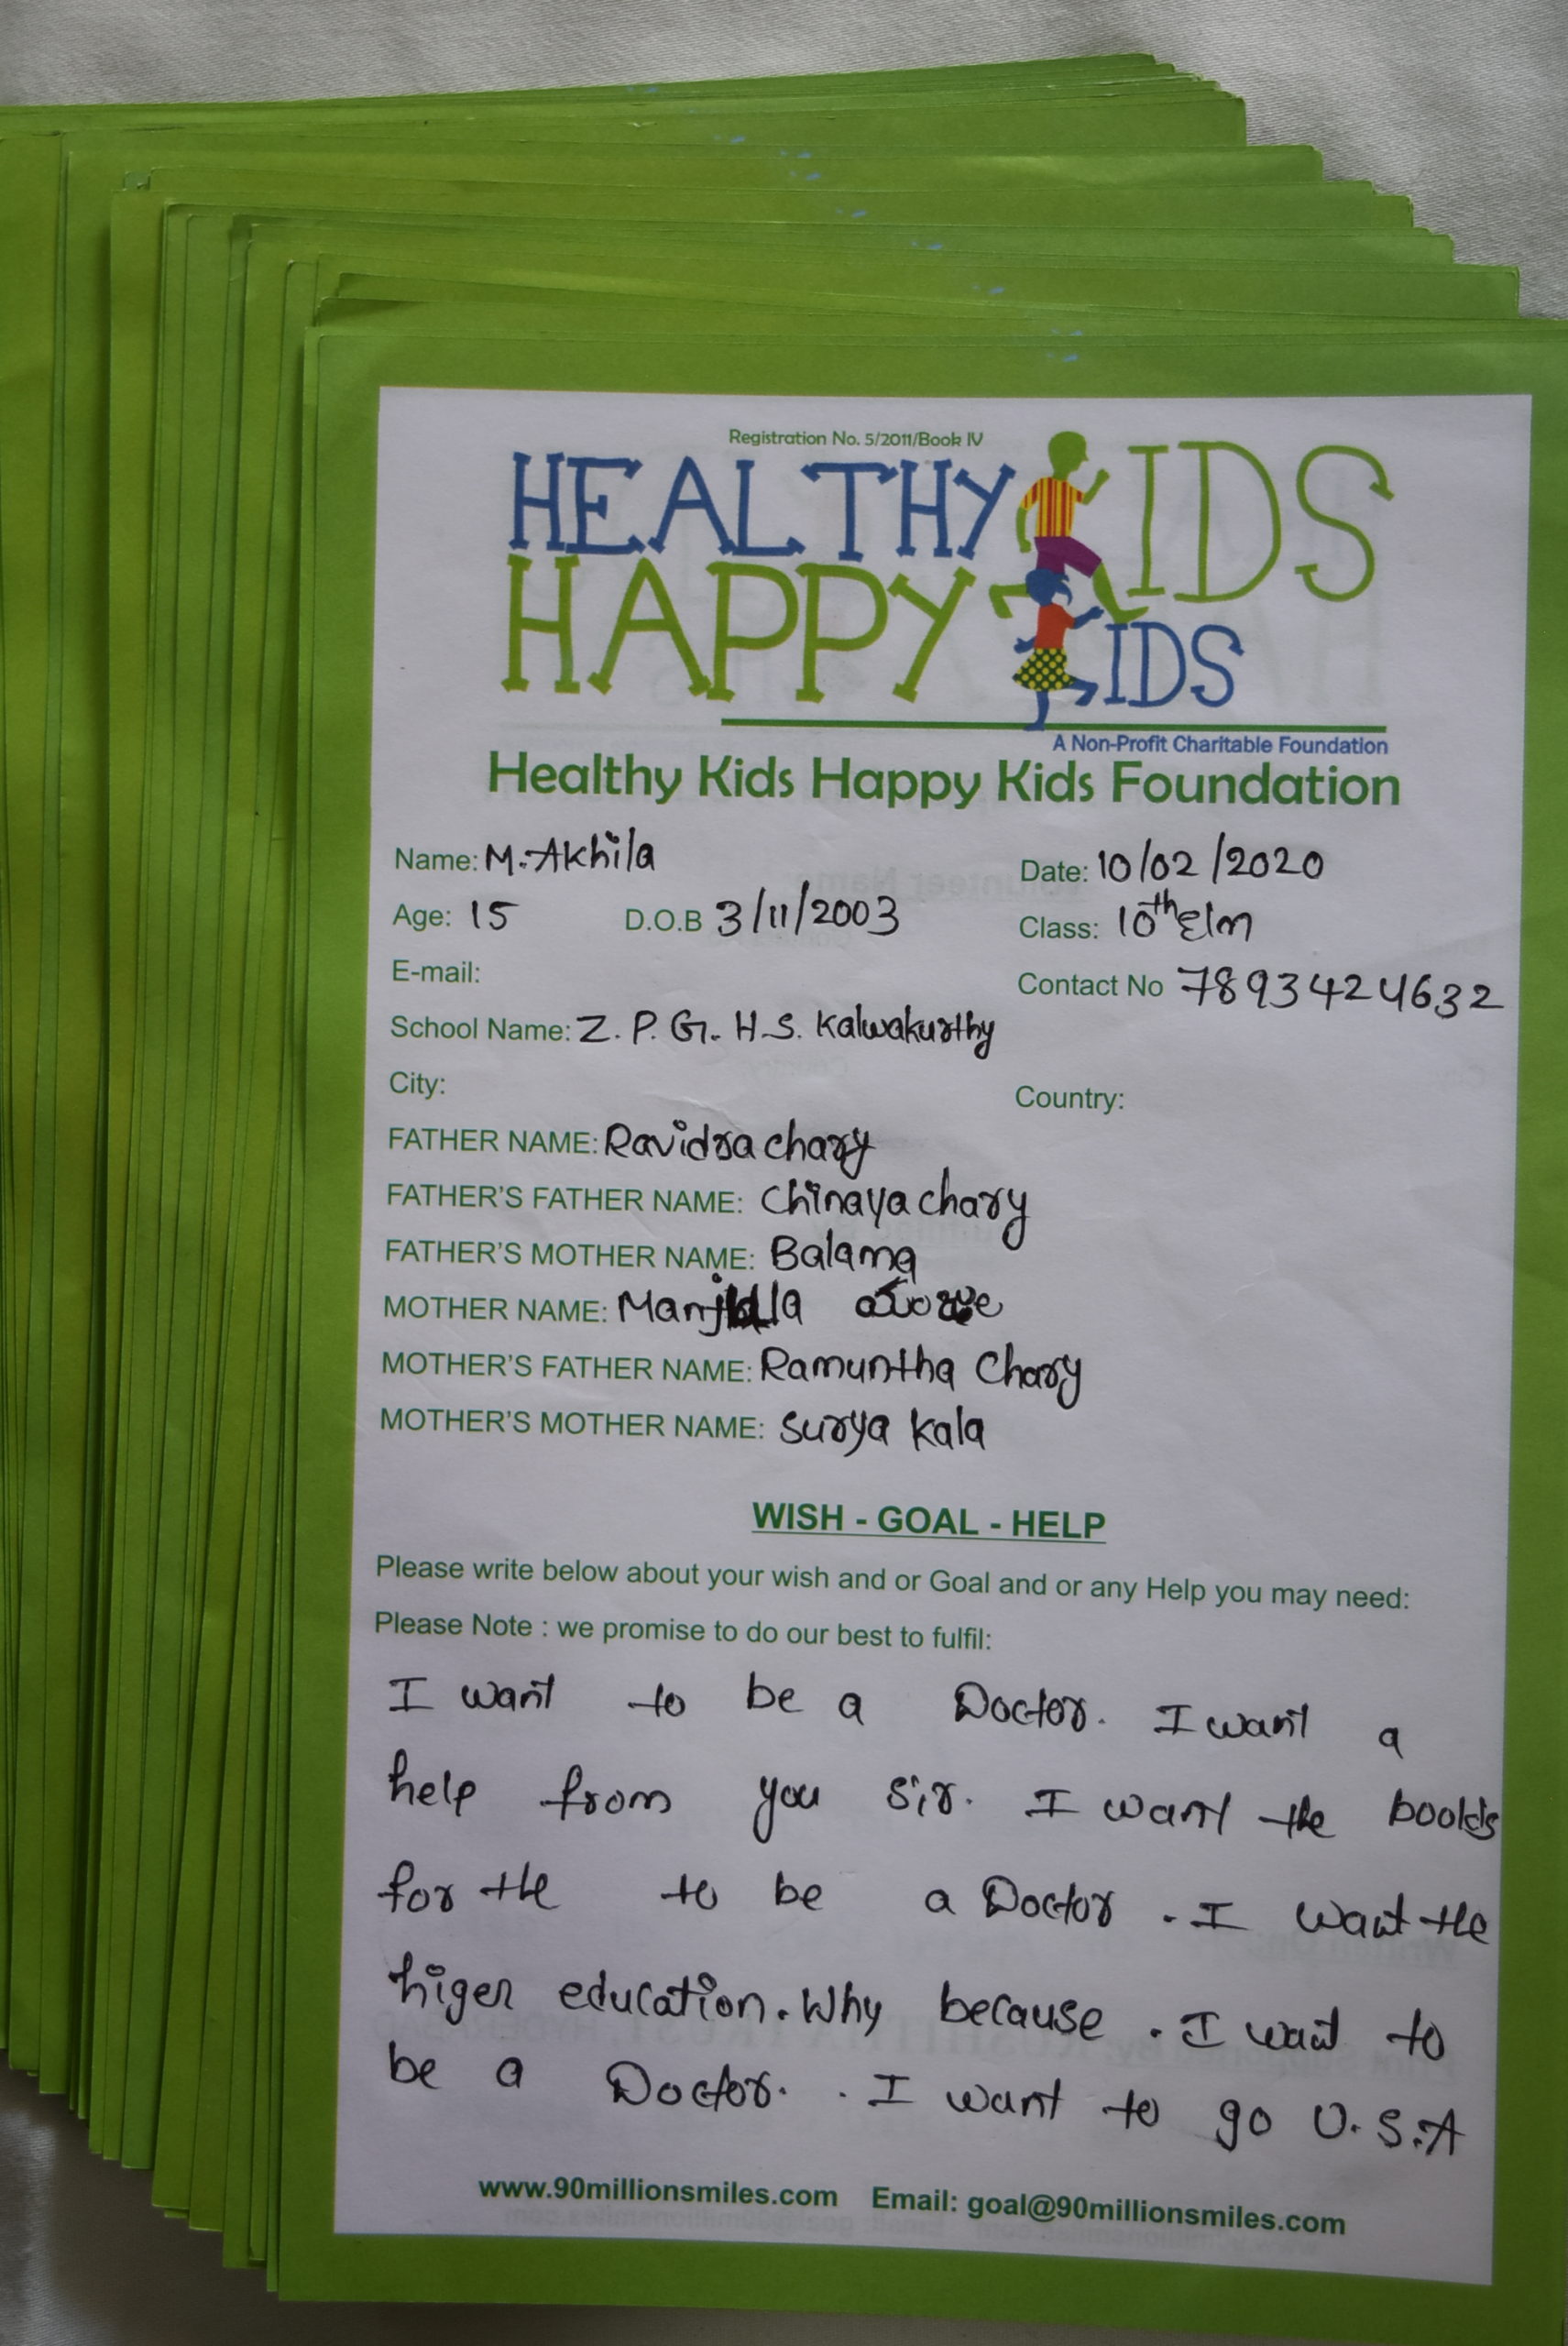 Registration No. 5/2011/Book IV
HEALTHY KIDS
HAPPY KIDS
A Non-Profit Charitable Foundation
Healthy Kids Happy Kids Foundation
Name: M. Akhila Date: 10/02/2020
Age: 15 D.O.B 3/11/2003 Class: 10th E/m
E-mail: Contact No 7893424632
School Name: Z. P. G. H. S. Kalwakurthy
City: Country:
FATHER NAME: Ravidra chary
FATHER'S FATHER NAME: Chinaya chary
FATHER'S MOTHER NAME: Balama
MOTHER NAME:
MOTHER'S FATHER NAME: Ramuntha Chary
MOTHER'S MOTHER NAME: Surya Kala
WISH - GOAL - HELP
Please write below about your wish and or Goal and or any Help you may need:
Please Note : we promise to do our best to fulfil:
I want to be a Doctor. I want a
help from you sir. I want the books
for the to be a Doctor . I want the
higer education. Why because . I want to
be a Doctor. . I want to go U.S.A
www.90millionsmiles.com Email: goal@90millionsmiles.com